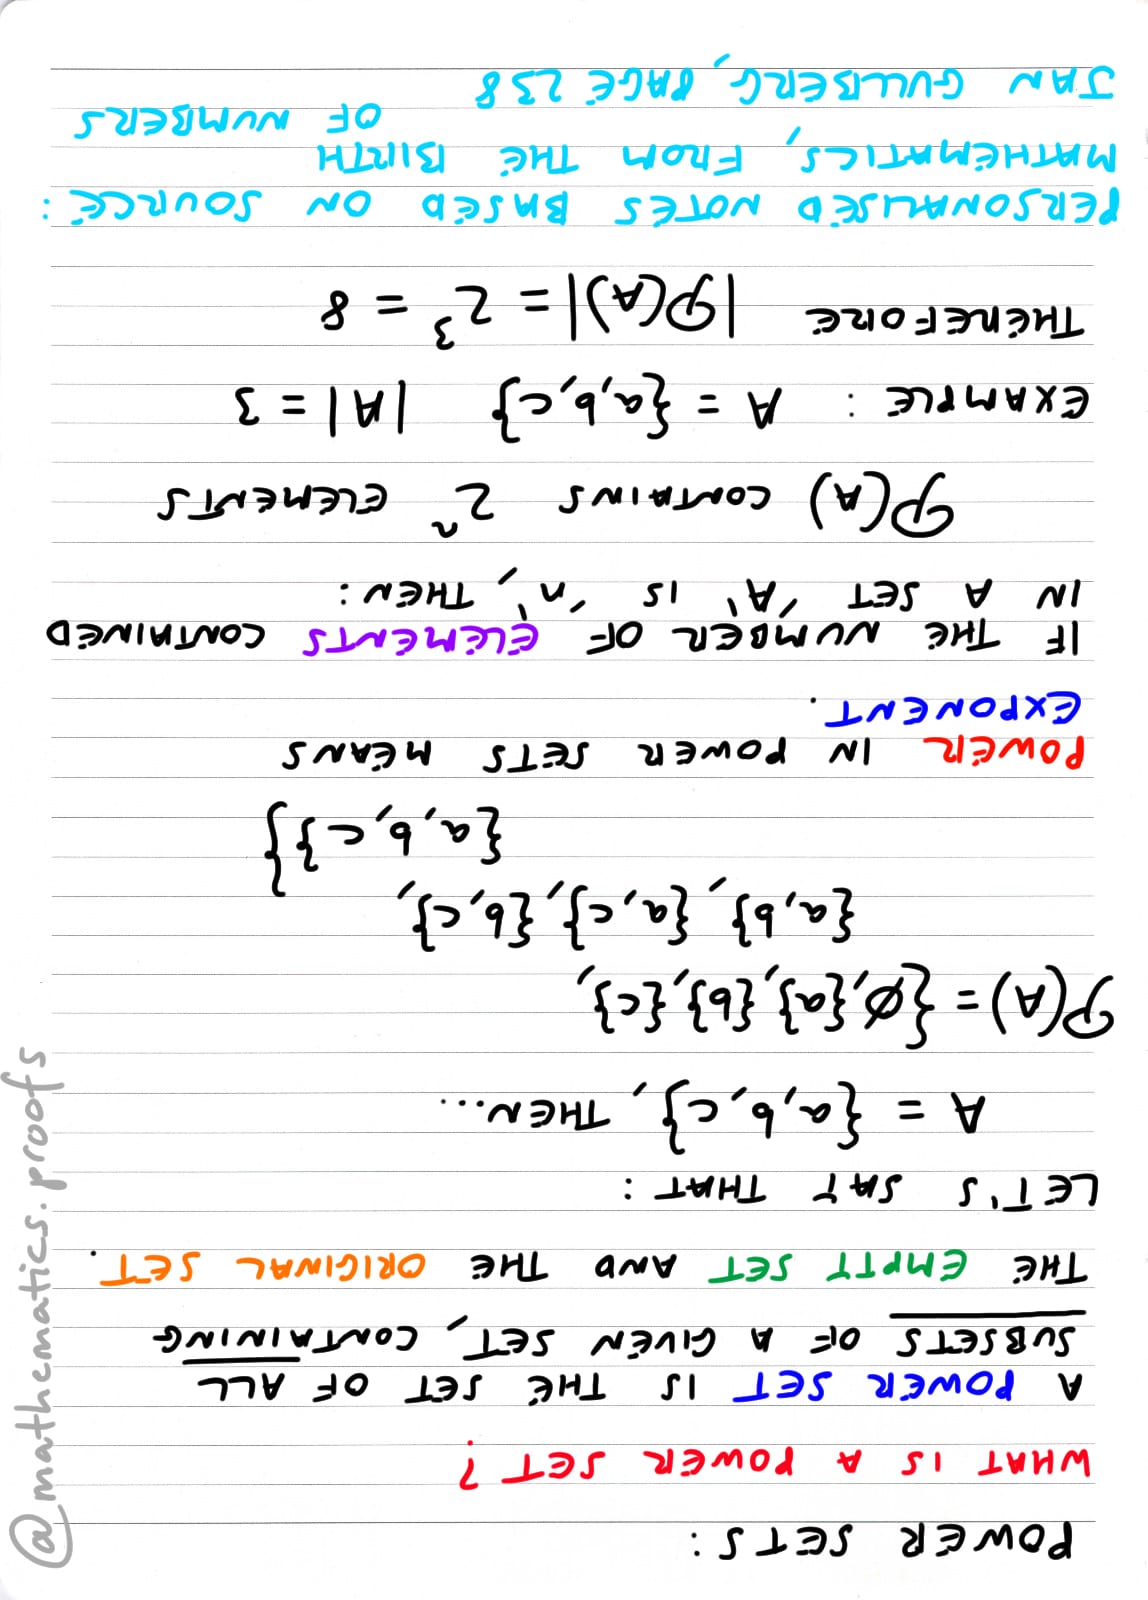 POWER SETS:
WHAT IS A POWER SET?
A POWER SET IS THE SET OF ALL
SUBSETS OF A GIVEN SET, CONTAINING
THE EMPTY SET AND THE ORIGINAL SET.
LET'S SAY THAT:
A = {a,b,c}, THEN...
𝒫(A) = {∅,{a},{b},{c},
{a,b}, {a,c}, {b,c},
{a,b,c}}
POWER IN POWER SETS MEANS
EXPONENT.
IF THE NUMBER OF ELEMENTS CONTAINED
IN A SET 'A' IS 'n', THEN:
𝒫(A) CONTAINS 2ⁿ ELEMENTS
EXAMPLE: A = {a,b,c} |A| = 3
THEREFORE |𝒫(A)| = 2³ = 8
PERSONALISED NOTES BASED ON SOURCE:
MATHEMATICS, FROM THE BIRTH
OF NUMBERS
JAN GULLBERG, PAGE 238
@mathematics.proofs